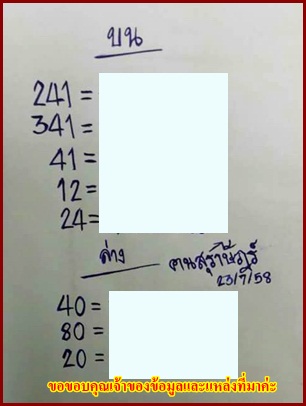 บน
241 =
341 =
41 =
12 =
24=
ล่าง
คนสุราษฎร์
23/7/58
40 =
80 =
20 =
ขอขอบคุณเจ้าของข้อมูลและแหล่งที่มาค่ะ